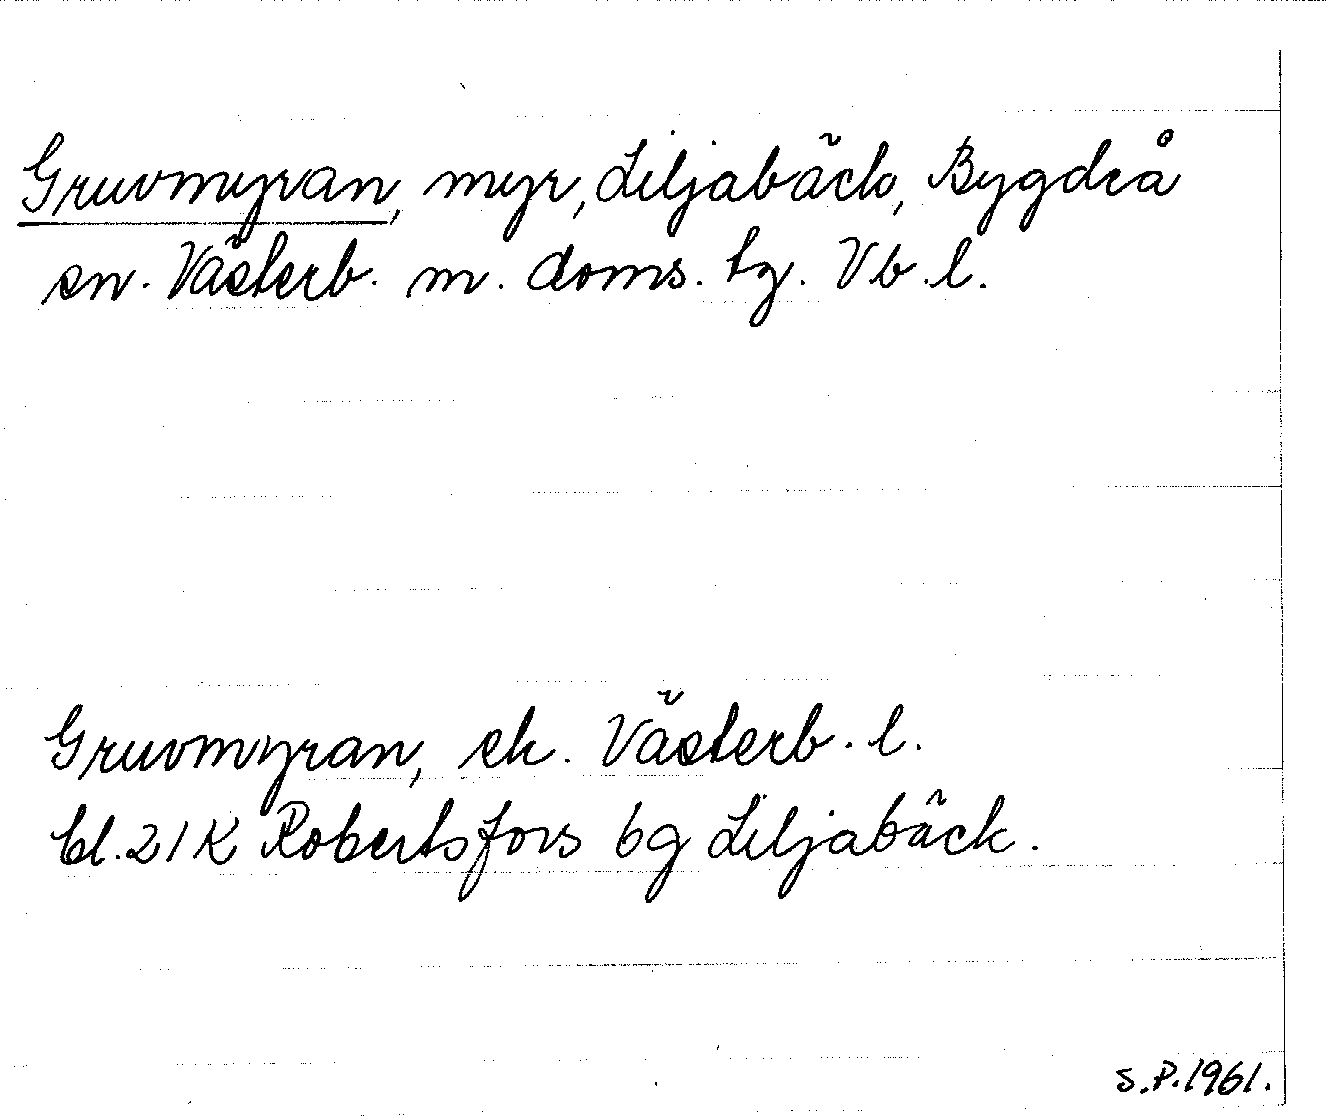 Gruvmyran, myr, Liljabäck, Bygdeå
sn. Västerb. m. doms. tg. Vb. l.
Gruvmyran, ek. Västerb. l.
bl. 21 K Robertsfors bg Liljabäck.
S.P. 1961.